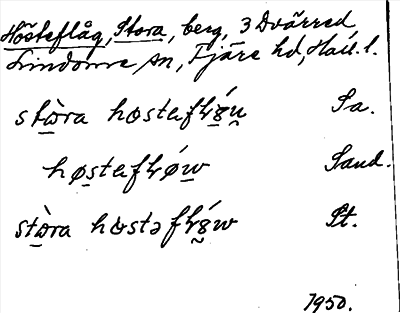 Hösteflåg, Stora, berg, 3 Dvärred
Lindome sn, Fjäre hd, Hall. l.
stò̱ra høstəflǿu Sa.
høstəflǿw Sand.
stò̱ra høstəflǿw St.
1950.